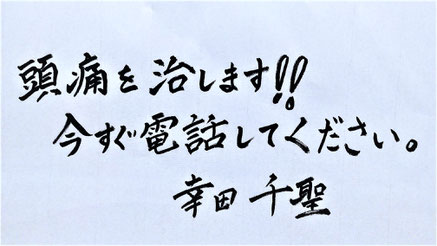 頭痛を治します!!
今すぐ電話してください。
幸田 千聖